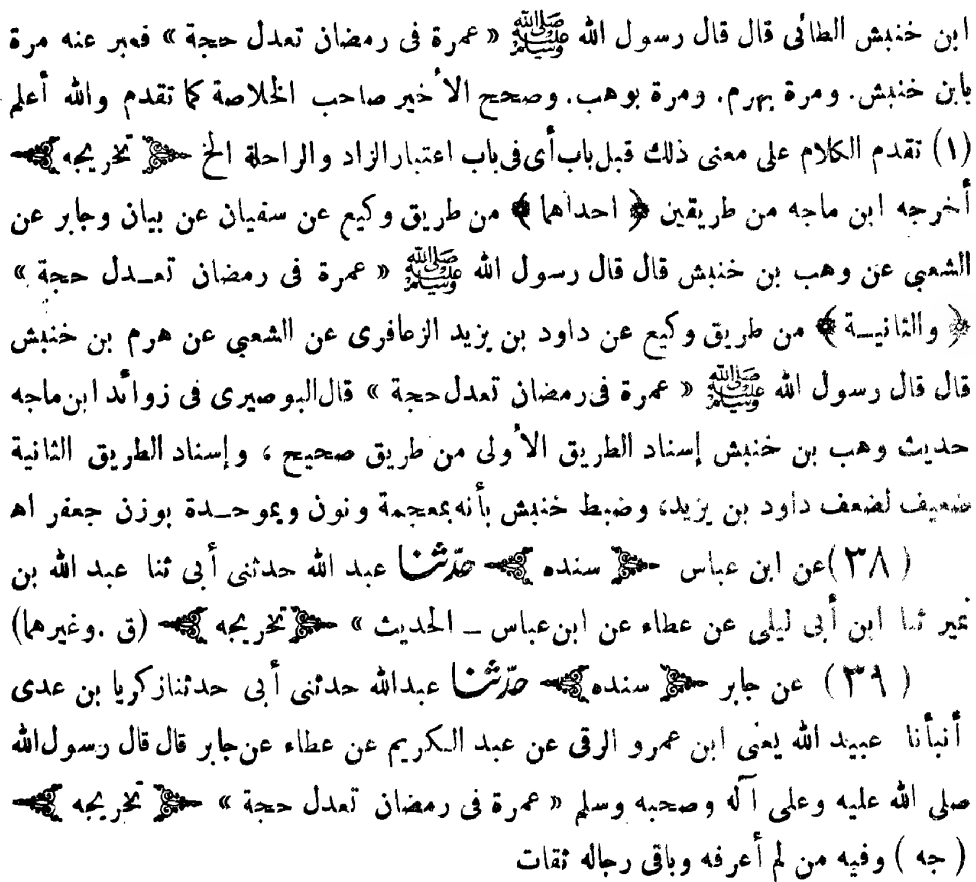 ابن خنبش الطائى قال قال رسول الله ﷺ « عمرة فى رمضان تعدل حجة » فعبر عنه مرة
بابن خنبش. ومرة بهرم. ومرة بوهب. وصحح الأخير صاحب الخلاصة كما تقدم والله أعلم
(١) تقدم الكلام على معنى ذلك قبل باب أى فى باب اعتبار الزاد والراحلة الخ ﴿ تخريجه ﴾
أخرجه ابن ماجه من طريقين ﴿ احداهما ﴾ من طريق وكيع عن سفيان عن بيان وجابر عن
الشعبى عن وهب بن خنبش قال قال رسول الله ﷺ « عمرة فى رمضان تعـدل حجة »
﴿ والثانيـة ﴾ من طريق وكيع عن داود بن يزيد الزعافرى عن الشعبي عن هرم بن خنبش
قال قال رسول الله ﷺ « عمرة فى رمضان تعدل حجة » قال البوصيرى فى زوائد ابن ماجه
حديث وهب بن خنبش إسناد الطريق الأولى من طريق صحيح ، وإسناد الطريق الثانية
ضعيف لضعف داود بن يزيد، وضبط خنبش بأنه بمعجمة ونون وبموحـدة بوزن جعفر اه
(٣٨) عن ابن عباس ﴿ سنده ﴾ حدّثنا عبد الله حدثنى أبى ثنا عبد الله بن
نمير ثنا ابن أبى ليلى عن عطاء عن ابن عباس ـ الحديث » ﴿ تخريجه ﴾ (ق .وغيرهما)
(٣٩) عن جابر ﴿ سنده ﴾ حدّثنا عبدالله حدثنى أبى حدثنا زكريا بن عدى
أنبأنا عبيد الله يعنى ابن عمرو الرقى عن عبد الكريم عن عطاء عن جابر قال قال رسول الله
صلى الله عليه وعلى آله وصحبه وسلم « عمرة فى رمضان تعدل حجة » ﴿ تخريجه ﴾
( جه ) وفيه من لم أعرفه وباقى رجاله ثقات